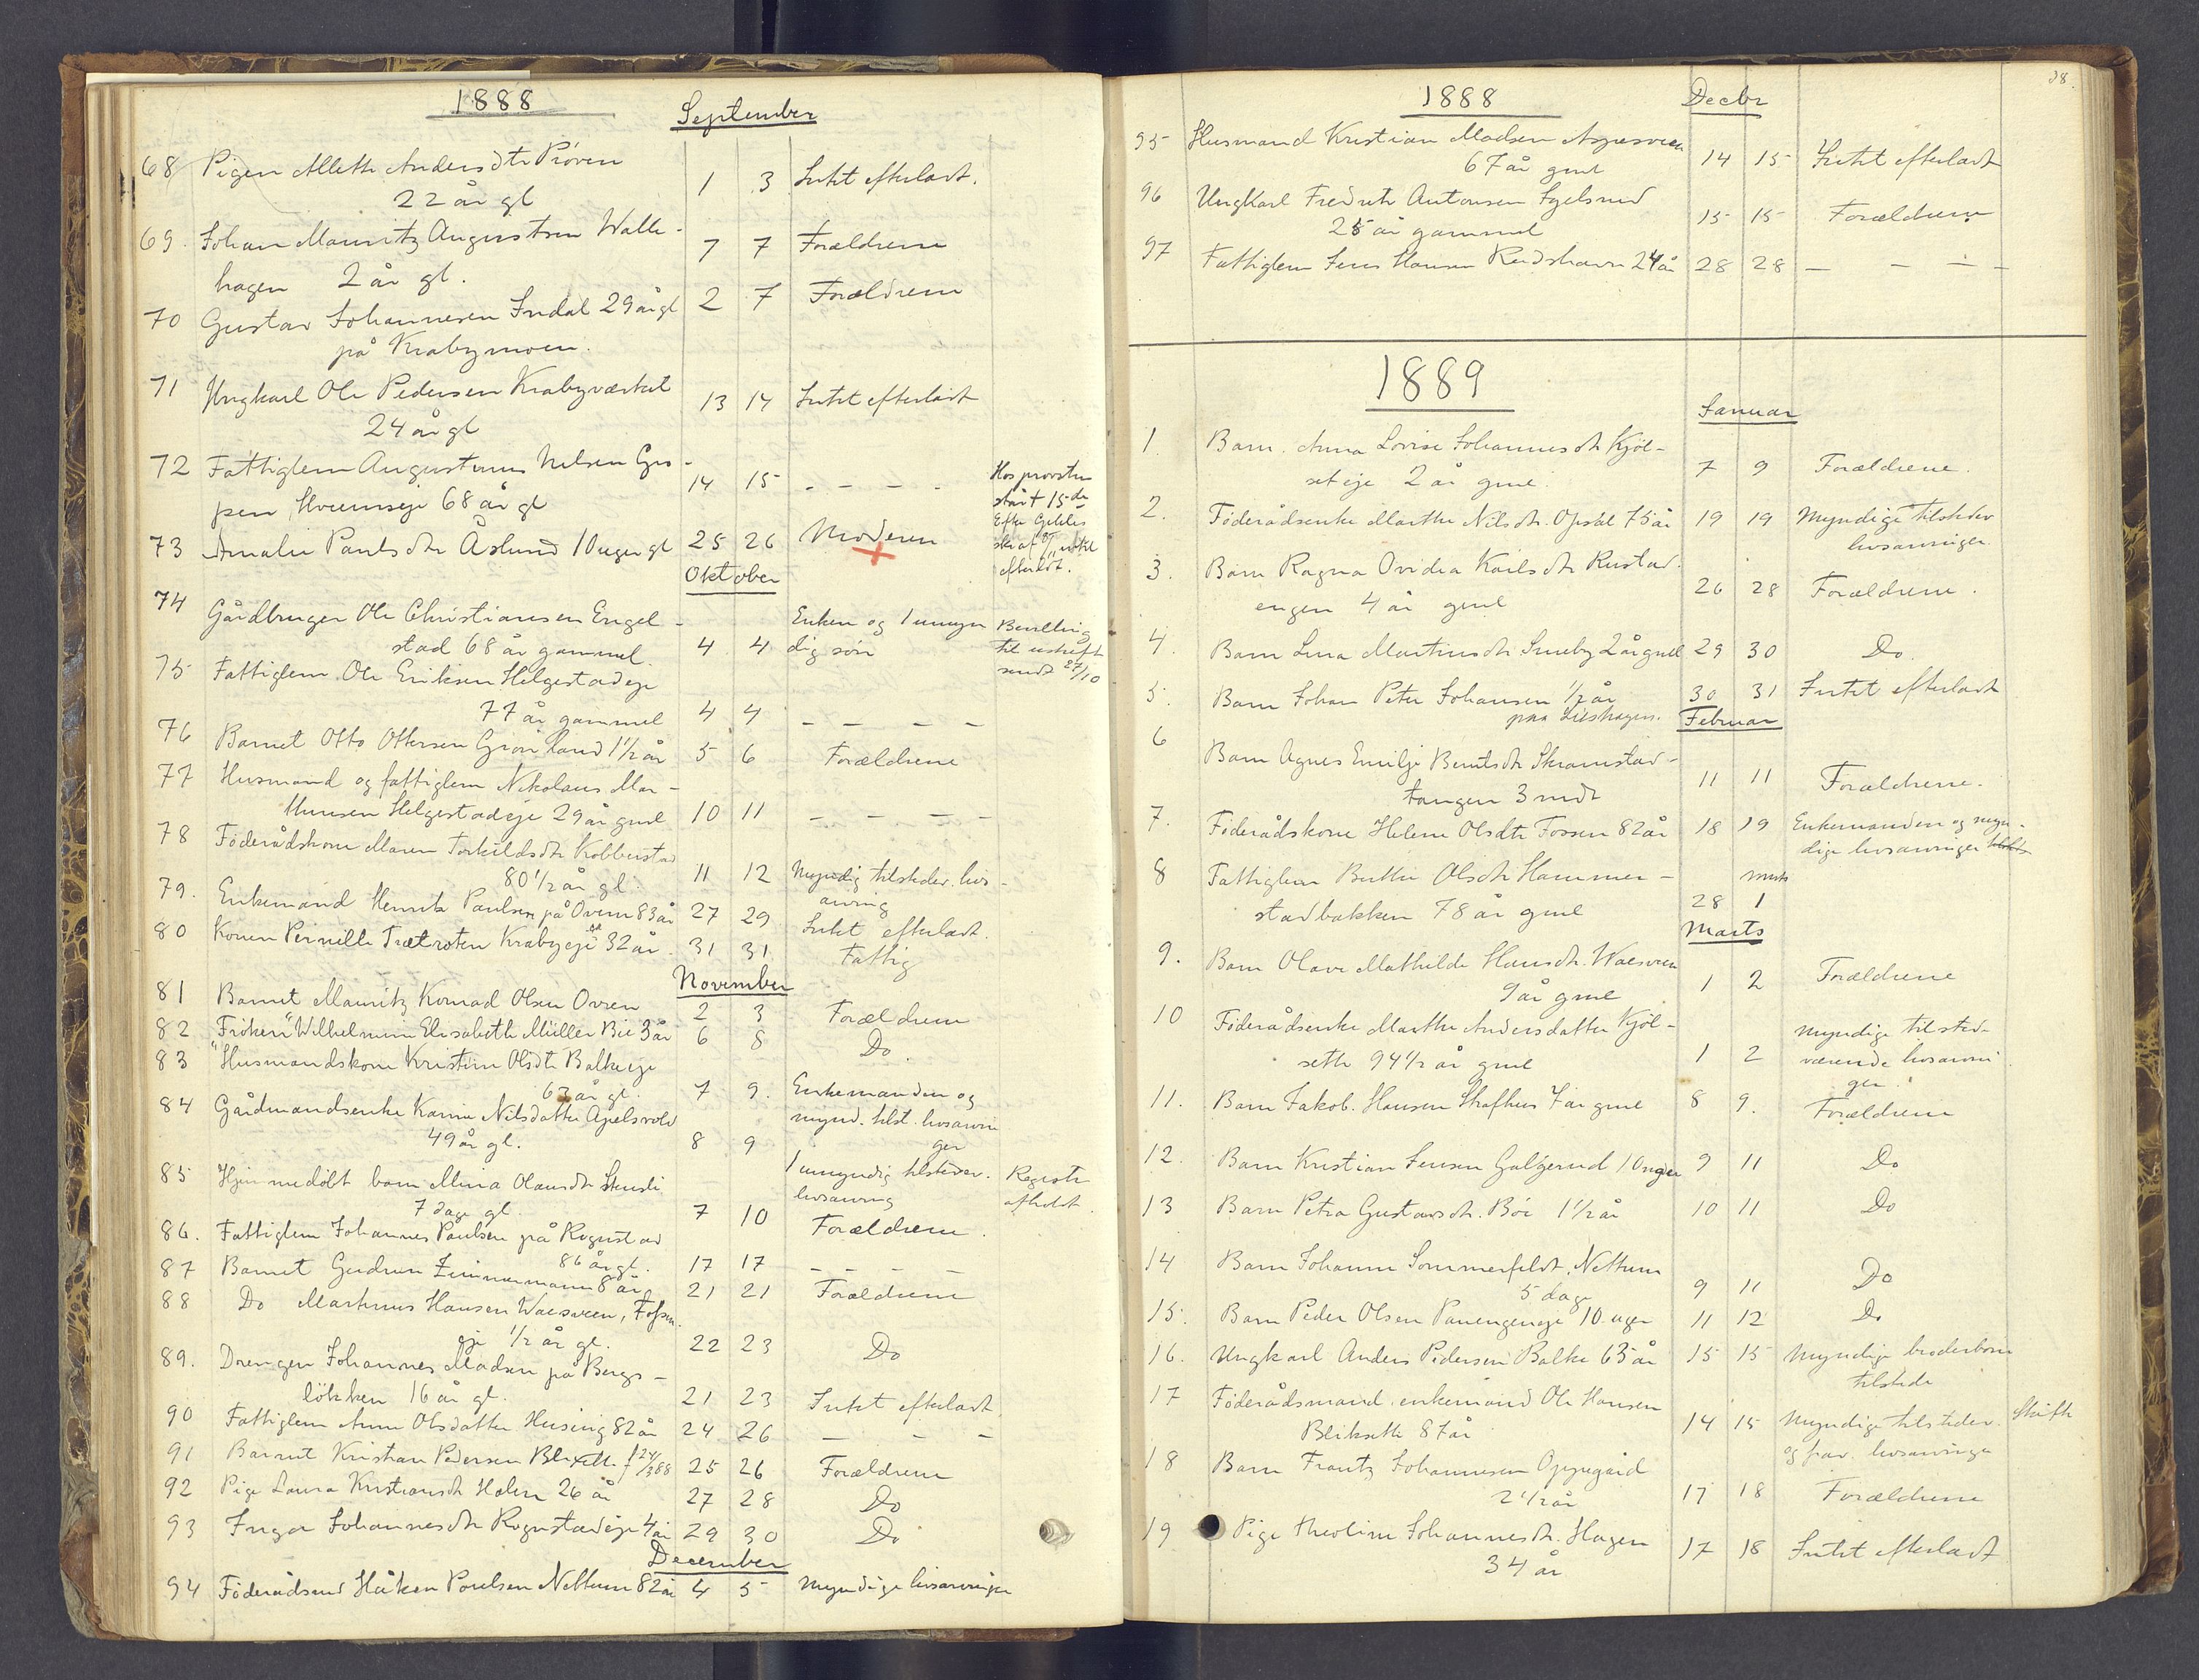 1888
September
68 Pigen Mette Andersdtr Prøven
22 år gl 1 3 Intet efterladt.
69. Johan Mauritz Augustsen Walle-
hagen 2 år gl. 7 7 Forældrene
70 Gustav Johannesen Indal 29 år gl 2 7 Forældrene
på Krabymoen.
71 Ungkarl Ole Pedersen Krabyværket
24 år gl 13 14 Intet efterladt
72 Fattiglem Augustinus Nilsen
68 år gl 14 15 - - - - Hos provsten
står † 15de
73 Amalie Paulsdtr Åslund 10 uger gl 25 26 Moderen
efterladt.
Oktober
74 Gårdbruger Ole Christiansen Engel-
stad 68 år gammel. 4 4 Enken og 1 umyn
dig søn Bevilling
til
sendt 27/10
75 Fattiglem Ole Eriksen Helgestadeje
77 år gammel 4 4 - - - -
76 Barnet Otto Ottersen Grönland 1 1/2 år 5 6 Forældrene
77 Husmand og fattiglem Nikolaus Mar-
thinsen Helgestadeje 29 år gml 10 11 - - - -
78 Föderådskone Maren Torkildsdtr Kobberstad
80 1/2 år gl. 11 12 Myndig tilstedev. livs-
arving
79. Enkemand Henrik Paulsen på Övern 83 år 27 29 Intet efterladt.
80 Konen Pernille Trætroten Krabyeje 32 år 31 31 Fattig
November
81 Barnet Mauritz Konrad Olsen Ovren 2 3 Forældrene
82 "Fröken" Wilhelmine Elisabeth Müller Bie 3 år 6 8 Do.
83 Husmandskone Kristine Olsdt Balkeeje
år gl. 7 9. Enkemanden og
mynd. tilst. livsarvin
ger
84 Gårdmandsenke Karine Nilsdatter Apelsvold
49 år gl. 8 9 1 umyndig tilstedev.
livsarving Registr
afholdt.
85 Hjemmedöbt barn Mina Olausdtr Stensli
7 dage gl. 7 10 Forældrene.
86. Fattiglem Johannes Paulsen på Rognstad
86 år gl. 17 17 - - - -
87 Barnet Gudrun Zimmermann 8 år 21 21 Forældrene
88 Do Martinus Hansen Waesveen, Fossen-
eje 1/2 år gl. 22 23 Do
89. Drengen Johannes Madsen på Bergs-
lökken 16 år gl. 21 23 Intet efterladt
90 Fattiglem Anne Olsdatter Huseng 82 år 24 26 - - -
91 Barnet Kristian Pedersen Blixelt. f 24/3 88 25 26 Forældrene
92 Pige Laura Kristiansdtr Holen 26 år 27 28 Do
93 Inga Johannesdtr Rognstadeje 4 år 29 30 Do
December
94 Föderådsmd Håken Poulsen Nettum 82 år 4 5 Myndige livsarvinger
38.
1888
Decbr
95 Husmand Kristian Madsen Aspesveen
67 år gml 14 15 Intet efterladt
96 Ungkarl Fredrik Antonsen
25 år gammel 15 15 Forældrene
97 Fattiglem Jens Hansen 24 år 28 28 - - - -
1889
Januar
1. Barn. Anna Lovise Johannesdtr Kjöl-
seteje 2 år gml. 7 9 Forældrene.
2. Föderådsenke Marthe Nilsdtr. Opsal 75 år 19 19 Myndige tilstedev
livsarvinger
3. Barn Ragna Ovidia Karlsdtr Rustad-
engen 4 år gml 26 28 Forældrene.
4. Barn Lina Martinsdtr Smeby 2 år gml 29 30 Do.
5. Barn Johan Peter Johansen 1/2 år 30 31 Intet efterladt
paa Lieshagen.
Februar
6 Barn Agnes Emilje Berntsdtr Skramstad-
tangen 3 mdr 11 11 Forældrene.
7. Föderådskone Helene Olsdtr Fossen 82 år 18 19 Enkemanden og myn-
dige livsarvinger
8 Fattiglem Berthe Olsdtr Hammer-
stadbakken 78 år gml 28 marts 1
Marts
9. Barn Olave Mathilde Hansdtr. Waesveen
9 år gml 1 2 Forældrene
10 Föderådsenke Marthe Andersdatter Kjöl-
seth 94 1/2 år gml 1 2 Myndige tilstede-
værende livsarvin
ger.
11. Barn Jakob. Hansen Skafhus 7 år gml 8 9. Forældrene
12. Barn Kristian Jensen Galgerud 10 uger 9 11 Do
13 Barn Petra Gustavsdtr. Böe 1 1/2 år 10 11 Do
14 Barn Johanne Sommerfeldt. Nettum
5 dage 9 11 Do
15. Barn Peder Olsen Panengeneje 10 uger 11 12 Do
16. Ungkarl Anders Pedersen Balke 63 år 15 15 Myndige broderbörn
tilstede
17 Föderådsmand, enkemand Ole Hansen
Bliksette 87 år 14 15 Myndige tilstedev.
og frav. livsarvinger Skifte
18 Barn Frantz Johannesen Oppegård
2 1/2 år 17 18 Forældrene
19 Pige Theoline Johannesdtr. Hagen
34 år 17 18 Intet efterladt